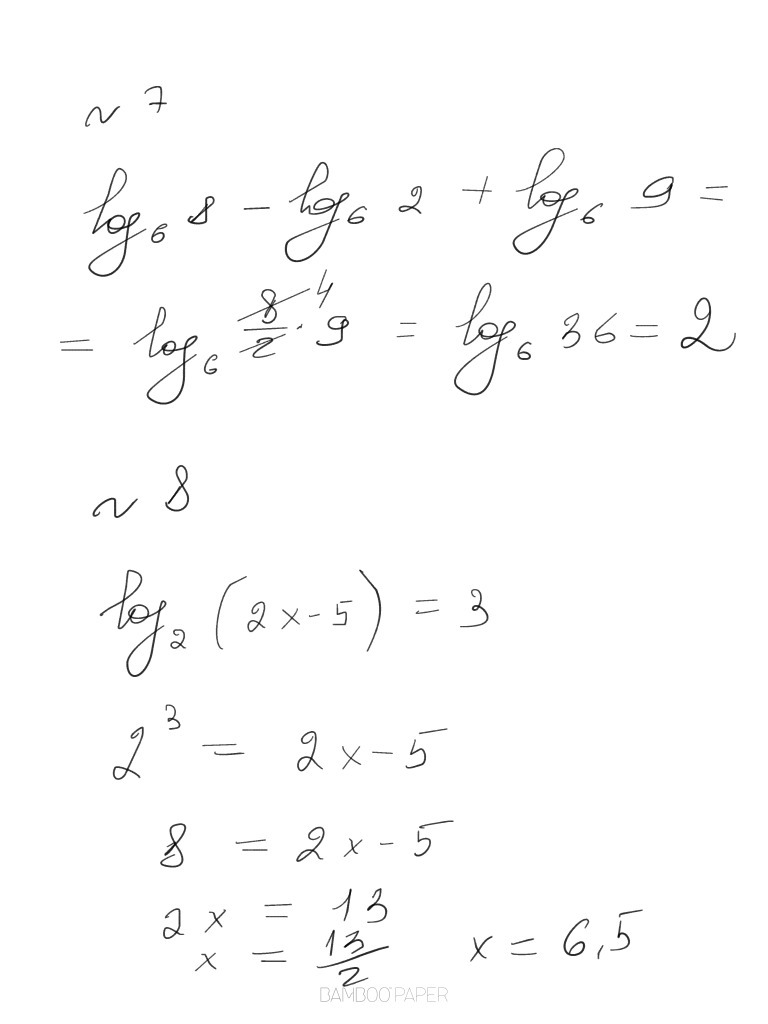 ~ 7
log₆ 8 - log₆ 2 + log₆ 9 =
= log₆ 8/2 4 · 9 = log₆ 36 = 2
~ 8
log₂ (2x-5) = 3
2³ = 2x-5
8 = 2x-5
2x = 13
x = 13/2 x = 6,5
BAMBOO PAPER